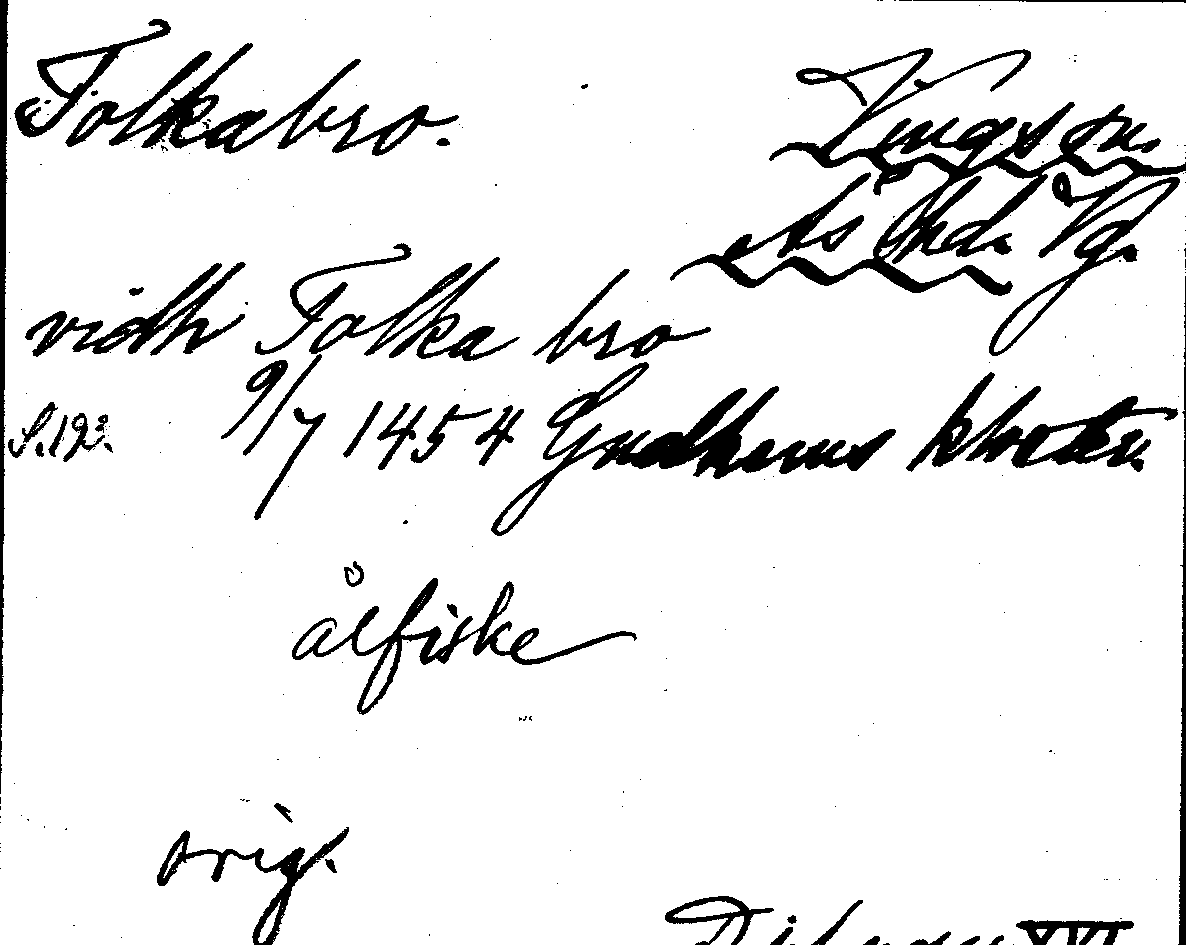 Folkabro.
Vings sn.
Ås hd. Vg.
vidh Folka bro
S. 123. 9/7 1454 Gudhems kloster.
ålfiske
orig.
XVI